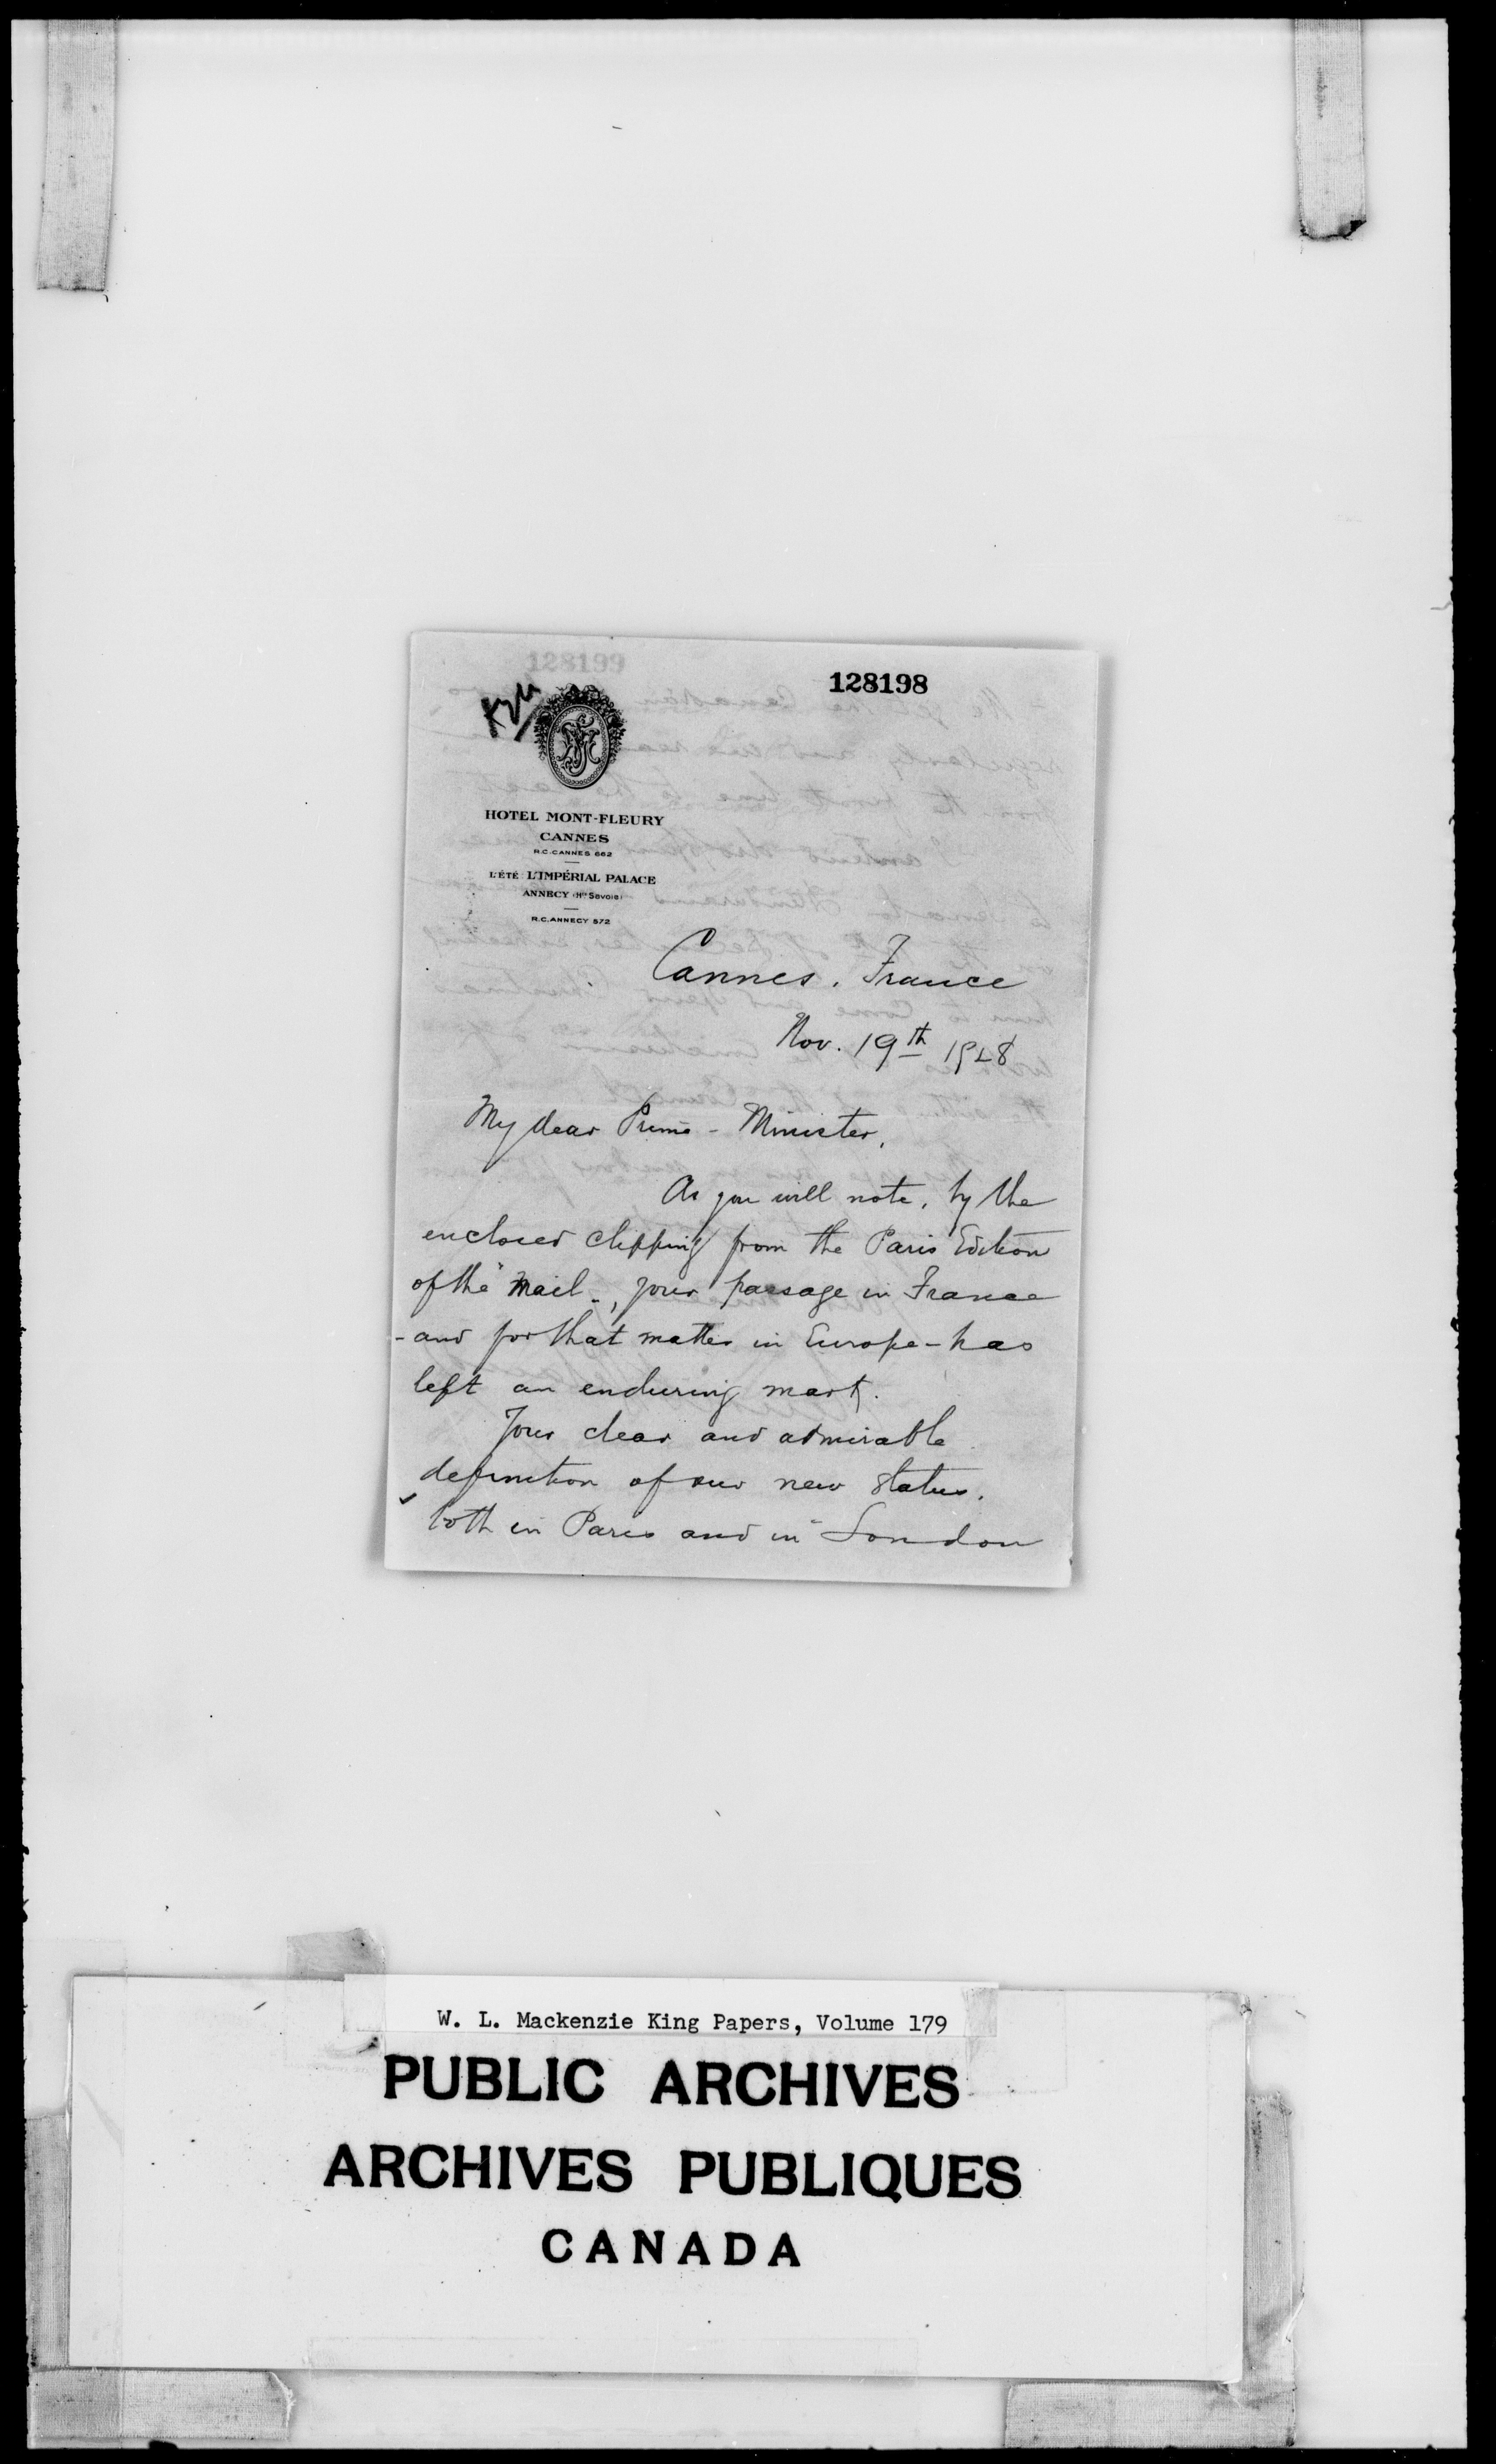 128199
128198
HOTEL MONT-FLEURY
CANNES
R.C. CANNES 662
L'ÉTÉ: L'IMPÉRIAL PALACE
ANNECY (Hte Savoie)
R.C. ANNECY 572
Cannes, France
Nov. 19th 1928
My dear Prime-Minister,
As you will note, by the
enclosed clipping from the Paris Edition
of the "Mail", your passage in France
- and for that matter in Europe - has
left an enduring mark.
Your clear and admirable
definition of our new status,
both in Paris and in London
W. L. Mackenzie King Papers, Volume 179
PUBLIC ARCHIVES
ARCHIVES PUBLIQUES
CANADA